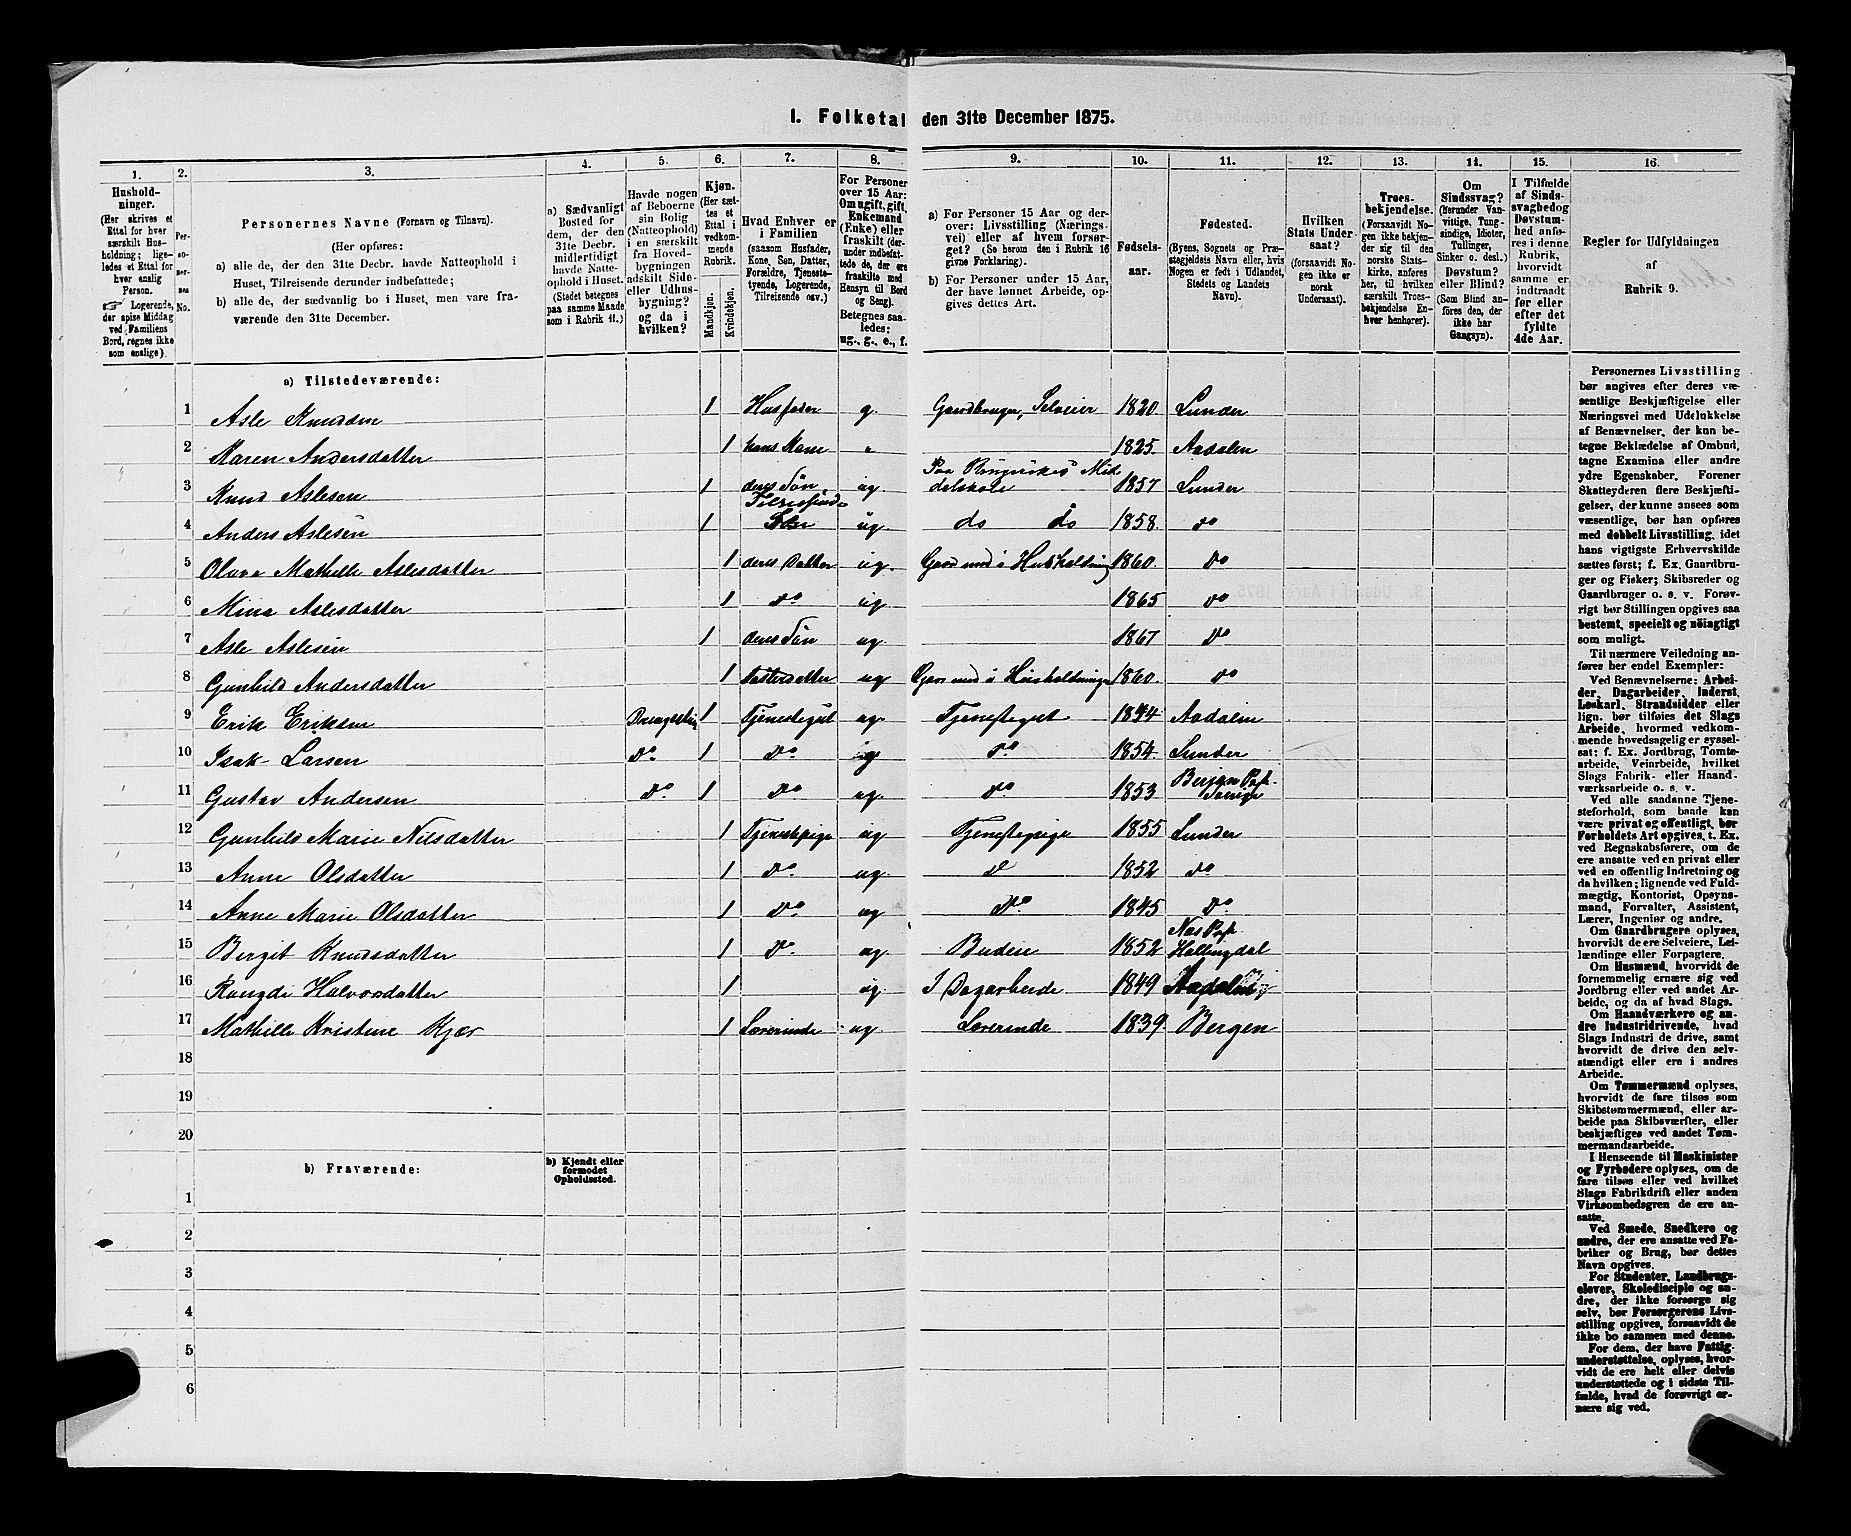 1. Folketal den 31te December 1875.
1. 2. 3. 4. 5. 6. 7. 8. 9. 10. 11. 12. 13. 14. 15. 16.
Husholdninger. (Her skrives et Ettal for hver særskilt Husholdning; ligeledes et Ettal for hver enslig Person. ☞ Logerende, der spise Middag ved Familiens Bord, regnes ikke som enslige).
Personernes No.
Personernes Navne (Fornavn og Tilnavn).
(Her opføres:
a) alle de, der den 31te Decbr. havde Natteophold i Huset, Tilreisende derunder indbefattede;
b) alle de, der sædvanlig bo i Huset, men vare fraværende den 31te December.
a) Sædvanligt Bosted for dem, der den 31te Decbr. midlertidigt havde Natteophold i Huset. (Stedet betegnes paa samme Maade som i Rubrik 11.)
Havde nogen af Beboerne sin Bolig (Natteophold) i en særskilt fra Hovedbygningen adskilt Side- eller Udhusbygning? og da i hvilken?
Kjøn. (Her sættes et Ettal i vedkommende Rubrik. Mandkjøn. Kvindekjøn.
Hvad Enhver er i Familien (saasom Husfader, Kone, Søn, Datter, Forældre, Tjenestetyende, Logerende, Tilreisende osv.)
For Personer over 15 Aar: Om ugift, gift, Enkemand (Enke) eller fraskilt (derunder indbefattede de, der ere fraskilte med Hensyn til Bord og Seng). Betegnes saaledes: ug., g., e., f.
a) For Personer 15 Aar og derover: Livsstilling (Næringsvei) eller af hvem forsørget? (Se herom den i Rubrik 16 givne Forklaring).
b) For Personer under 15 Aar, der have lønnet Arbeide, opgives dettes Art.
Fødselsaar.
Fødested. (Byens, Sognets og Præstegjeldets Navn eller, hvis Nogen er født i Udlandet, Stedets og Landets Navn).
Hvilken Stats Undersaat? (forsaavidt Nogen ikke er norsk Undersaat).
Troesbekjendelse. (Forsaavidt Nogen ikke bekjender sig til den norske Statskirke, anføres her, til hvilken særskilt Troesbekjendelse Enhver henhører).
Om Sindssvag? (Herunder Vanvittige, Tungsindige, Idioter, Tullinger, Sinker o. desl.) Døvstum? eller Blind? (Som Blind anføres den, der ikke har Gangsyn).
I Tilfælde af Sindssvaghed og Døvstumhed anføres i denne Rubrik, hvorvidt samme er indtraadt før eller efter det fyldte 4de Aar.
Regler for Udfyldningen af Rubrik 9.
a) Tilstedeværende:
1 Asle Knudsen 1 Husfader g. Gaardbruger, Selveier 1820 Lunder
2 Maren Andersdatter 1 hans Kone " 1825. Aadalen
3 Knud Aslesen 1 deres Søn ug Paa Ringerikes Middelskole 1857 Lunder
4 Anders Aslesen 1 ug do do 1858. do
5 Oluva Mathilde Aslesdatter 1 deres Datter ug. Gaar med i Husholdning 1860. do
6 Mina Aslesdatter 1 do ug 1865 do
7 Asle Aslesen 1 deres Søn ug 1867 do
8 Gunhild Andersdatter 1 ug Gaar med i Husholdningen 1860. do
9 Erik Eriksen 1 Tjenestegut ug Tjenestegut 1844 Aadalen
10 Isak Larsen do 1 do ug do 1854. Lunder
11 Gustav Andersen do 1 do ug do 1853
12 Gunhild Marie Nilsdatter 1 Tjenestepige ug Tjenestepige 1855 Lunder
13 Anne Olsdatter 1 do ug d 1852 do
14 Anne Marie Olsdatter 1 do ug do 1845 do
15 Bergit Knudsdatter 1 do ug Budeie 1852 Nes Pgt Hallingdal
16 Rangdi Halvorsdatter 1 ug I Dagarbeide 1849 Aadalen
17 Mathilde Kristine Kjær 1 Lærerinde ug Lærerinde 1839. Bergen
18
19
20
b) Fraværende:
b) Kjendt eller formodet Opholdssted.
1
2
3
4
5
6
Personernes Livsstilling
bør angives efter deres væ-
sentlige Beskjæftigelse eller
Næringsvei med Udelukkelse
af Benævnelser, der kun be-
tegne Beklædelse af Ombud,
tagne Examina eller andre
ydre Egenskaber. Forener
Skatteyderen flere Beskjæfti-
gelser, der kunne ansees som
væsentlige, bør han opføres
med dobbelt Livsstilling, idet
hans vigtigste Erhvervskilde
sættes først; f. Ex. Gaardbru-
ger og Fisker; Skibsreder og
Gaardbruger o. s. v. Forøv-
rigt bør Stillingen opgives saa
bestemt, specielt og nøiagtigt
som muligt.
Til nærmere Veiledning an-
føres her endel Exempler:
Ved Benævnelserne: Arbei-
der, Dagarbeider, Inderst,
Løskarl, Strandsidder eller
lign. bør tilføies det Slags
Arbeide, hvormed vedkom-
mende hovedsagelig er syssel-
sat; f. Ex. Jordbrug, Tomte-
arbeide, Veiarbeide, hvilket
Slags Fabrik- eller Haand-
værksarbeide o. s. v.
Ved alle saadanne Tjene-
steforhold, som baade kan
være privat og offentligt, bør
Forholdets Art opgives, t. Ex.
ved Regnskabsførere, om de
ere ansatte ved en privat eller
ved en offentlig Indretning og
da hvilken; lignende ved Fuld-
mægtig, Kontorist, Opsyns-
mand, Forvalter, Assistent,
Lærer, Ingeniør og andre.
Om Gaardbrugere oplyses,
hvorvidt de ere Selveiere, Lei-
lændinge eller Forpagtere.
Om Husmænd, hvorvidt de
fornemmelig ernære sig ved
Jordbrug eller ved andet Ar-
beide, og da af hvad Slags.
Om Haandværkere og an-
dre Industridrivende, hvad
Slags Industri de drive, samt
hvorvidt de drive den selv-
stændigt eller ere i andres
Arbeide.
Om Tømmermænd oplyses,
hvorvidt de fare tilsøs som
Skibstømmermænd, eller ar-
beide paa Skibsværfter, eller
beskjæftiges ved andet Tøm-
mermandsarbeide.
I Henseende til Maskinister
og Fyrbødere oplyses, om de
fare tilsøs eller ved hvilket
Slags Fabrikdrift eller anden
Virksomhedsgren de ere an-
satte.
Ved Smede, Snedkere og
andre, der ere ansatte ved Fa-
briker og Brug, bør dettes
Navn opgives.
For Studenter, Landbrugs-
elever, Skoledisciple og an-
dre, der ikke forsørge sig
selv, bør Forsørgerens Livs-
stilling opgives, forsaavidt de
ikke bo sammen med denne.
For dem, der have Fattig-
understøttelse, oplyses, hvor-
vidt de ere helt eller delvis
understøttede og i sidste Til-
fælde, hvad de forøvrigt er-
nære sig ved.